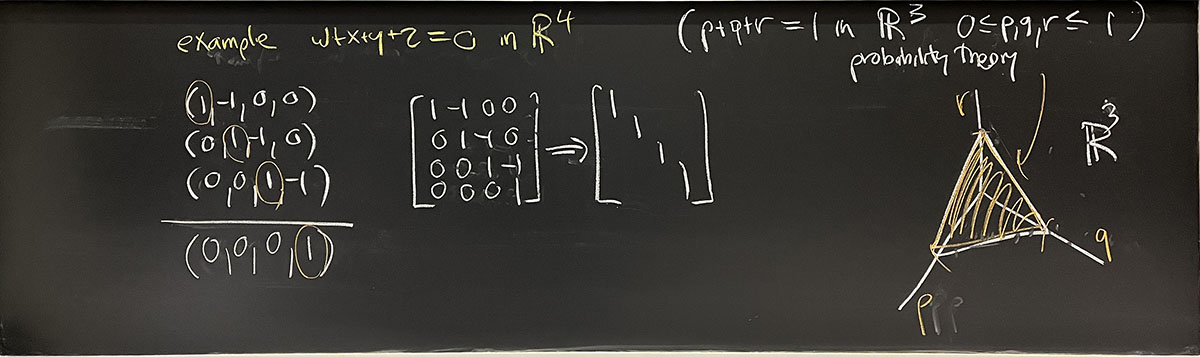 example w+x+y+z=0 in ℝ⁴
(p+q+r=1 in ℝ³ 0≤p,q,r≤1)
probability theory
(1,-1,0,0)
(0,1,-1,0)
(0,0,1,-1)
(0,0,0,1)
[1 -1 0 0
0 1 -1 0
0 0 1 -1
0 0 0 1]
⇒
[1
1
1
1]
r
ℝ³
q
p